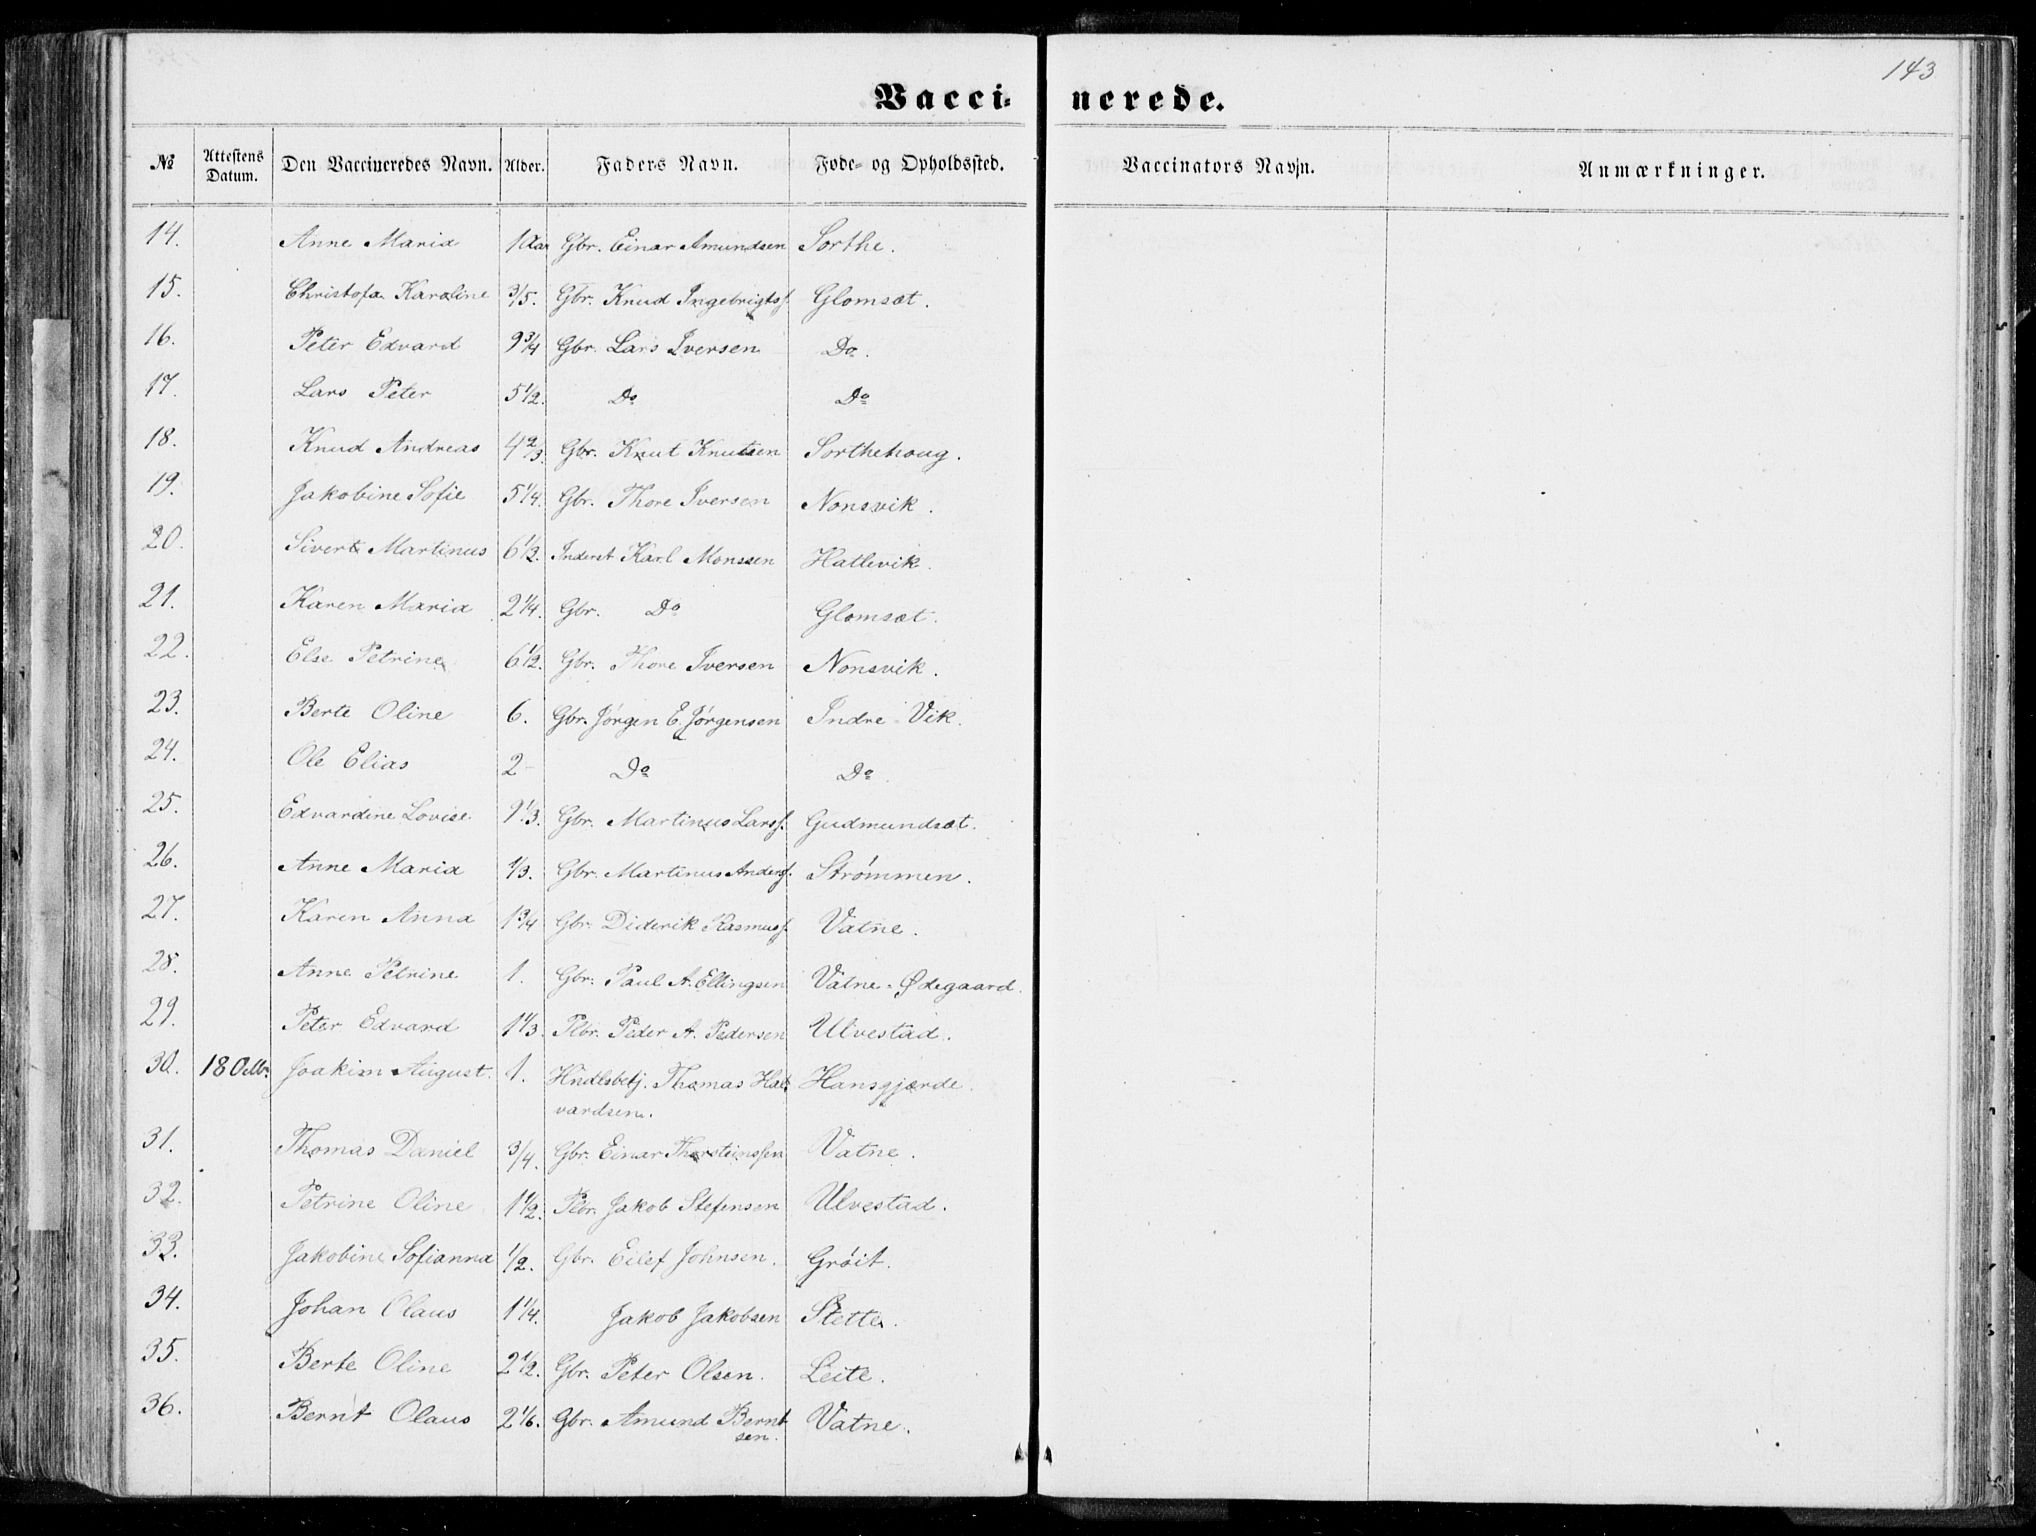 143
Vacci- nerede.
№ Attestens Datum. Den Vaccineredes Navn. Alder. Faders Navn. Føde- og Opholdssted. Vaccinators Navn. Anmærkninger.
14. Anne Maria 1 Aar Gbr. Einar Amundsen Sorthe.
15. Christofa Karoline 3/5. Gbr. Knud Ingebrigts. Glomsæt.
16. Peter Edvard 9 3/4 Gbr. Lars Iversen Do.
17. Lars Peter 5 1/2. Do Do
18. Knud Andreas 4 2/3. Gbr. Knut Knutsen Sorthehoug.
19. Jakobine Sofie 5 1/4. Gbr. Thore Iversen Nonsvik.
20. Sivert Martinus 6 1/2. Inderst Karl Monssen Hatlevik.
21. Karen Maria 2 1/4. Gbr. Do Glomsæt.
22. Else Petrine 6 1/2. Gbr. Thore Iversen Nonsvik.
23. Berte Oline 6. Gbr. Jørgen E. Jørgensen Indre-Vik.
24. Ole Elias 2 - Do Do.
25. Edvardine Lovise 1/3. Gbr. Martinus Larss. Gudmundsæt.
26. Anne Maria 1/3. Gbr. Martinus Anders. Strømmen.
27. Karen Anna 1 3/4 Gbr. Diderik Rasmuss. Vatne.
28. Anne Petrine 1. Gbr. Paul A. Ellingsen Vatne-Ødegaard.
29. Peter Edvard 1 1/3. Plbr. Peder A. Pedersen Ulvestad.
30. 18 Octbr. Joakim August. 1. Hndlsbetj. Thomas Hal- Hansgjærde.
vardsen.
31. Thomas Daniel 3/4. Gbr. Einar Thorsteinssen Vatne.
32. Petrine Oline 1 1/2. Plbr. Jakob Stefensen Ulvestad.
33. Jakobine Sofianna 1/2. Gbr. Eilef Johnsen. Grøit.
34. Johan Olaus 1 1/4. Jakob Jakobsen Stette.
35. Berte Oline 2 1/2. Gbr. Peter Olsen. Leite.
36. Bernt Olaus 2 1/6. Gbr. Amund Bernt- Vatne.
sen.